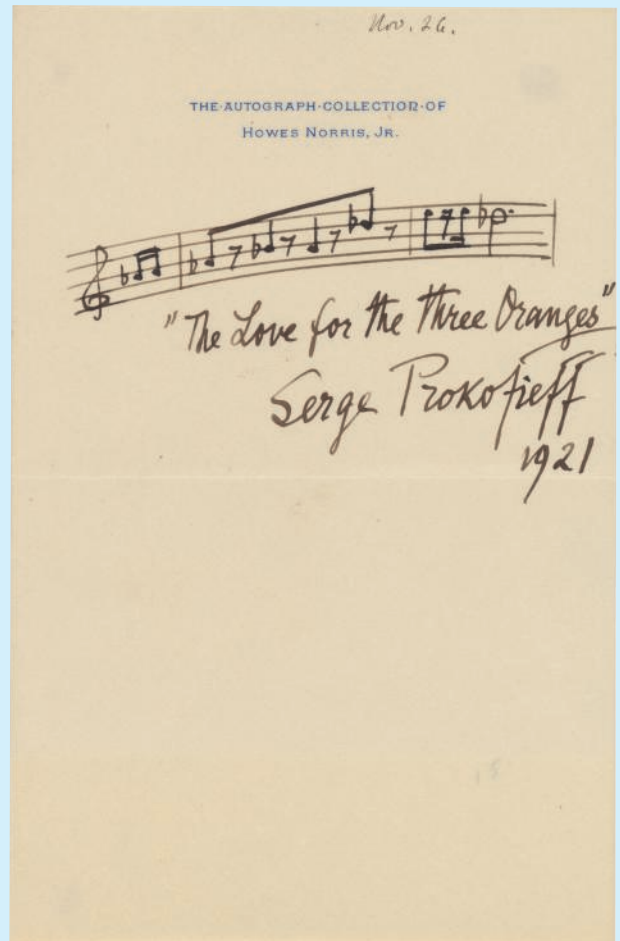 Nov. 26.
THE·AUTOGRAPH·COLLECTION·OF
HOWES NORRIS, JR.
"The Love for the Three Oranges"
Serge Prokofieff
1921